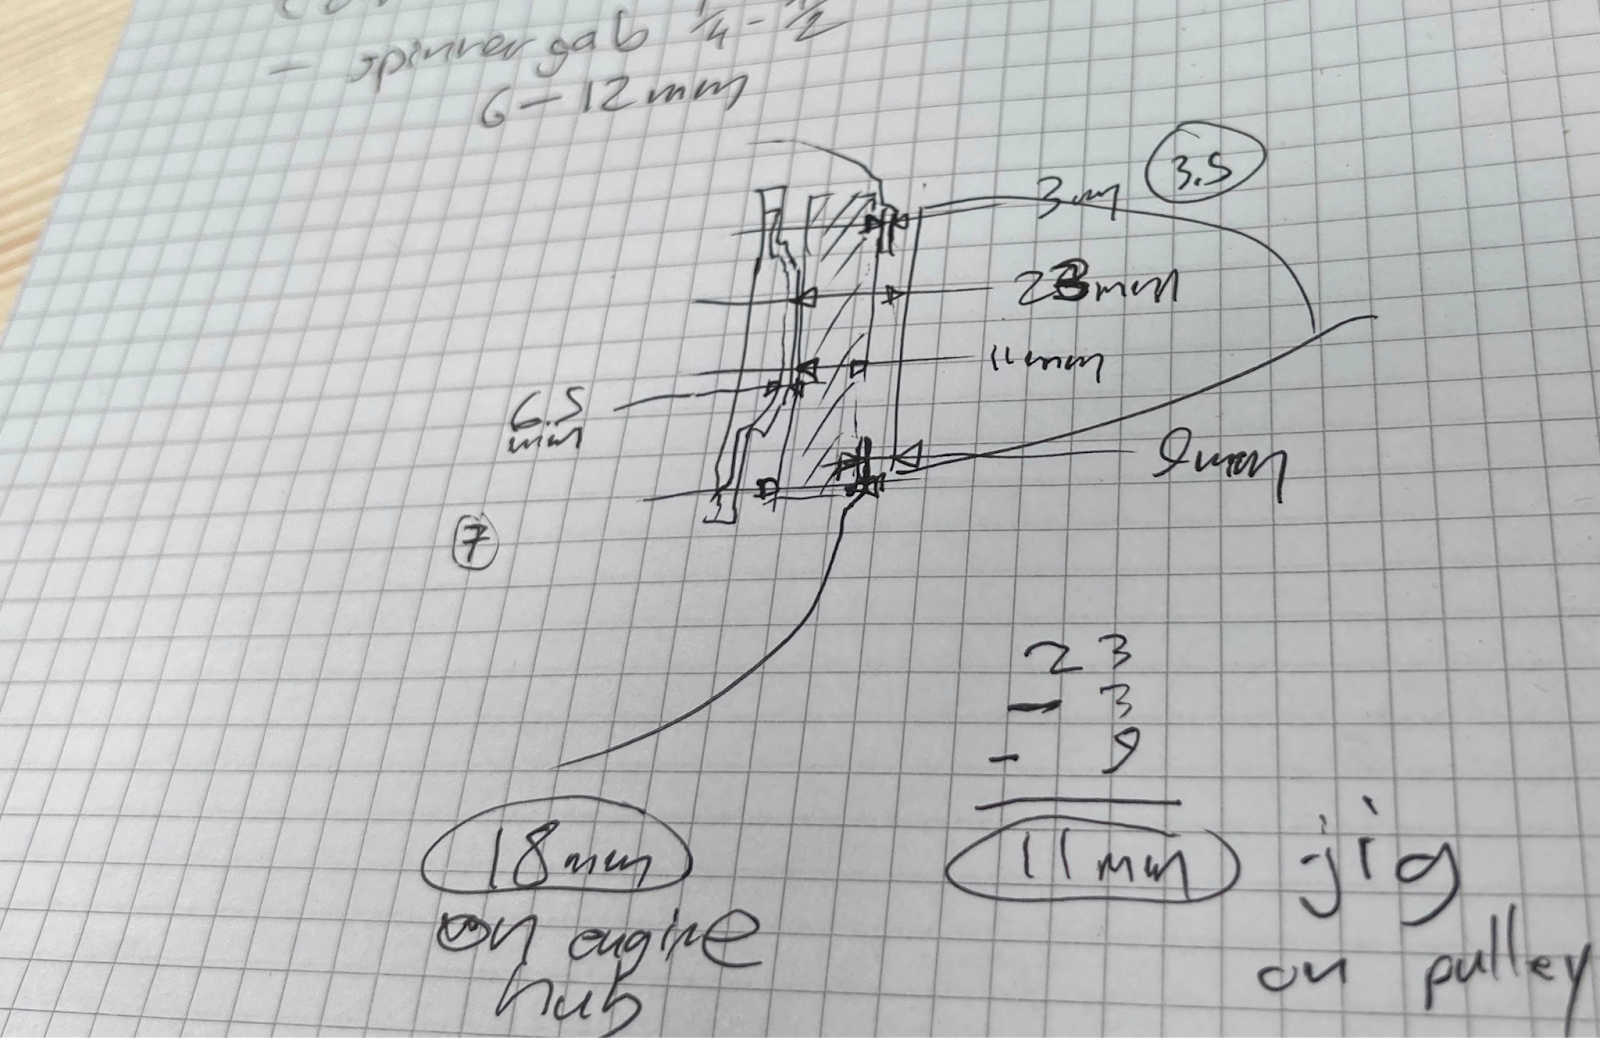 - spinner gab 1/4 - 1/2
6-12mm
3.5
3mm
23mm
11mm
6.5
mm
9mm
7
23
- 3
- 9
11mm jig
on pulley
18mm
on engine
hub